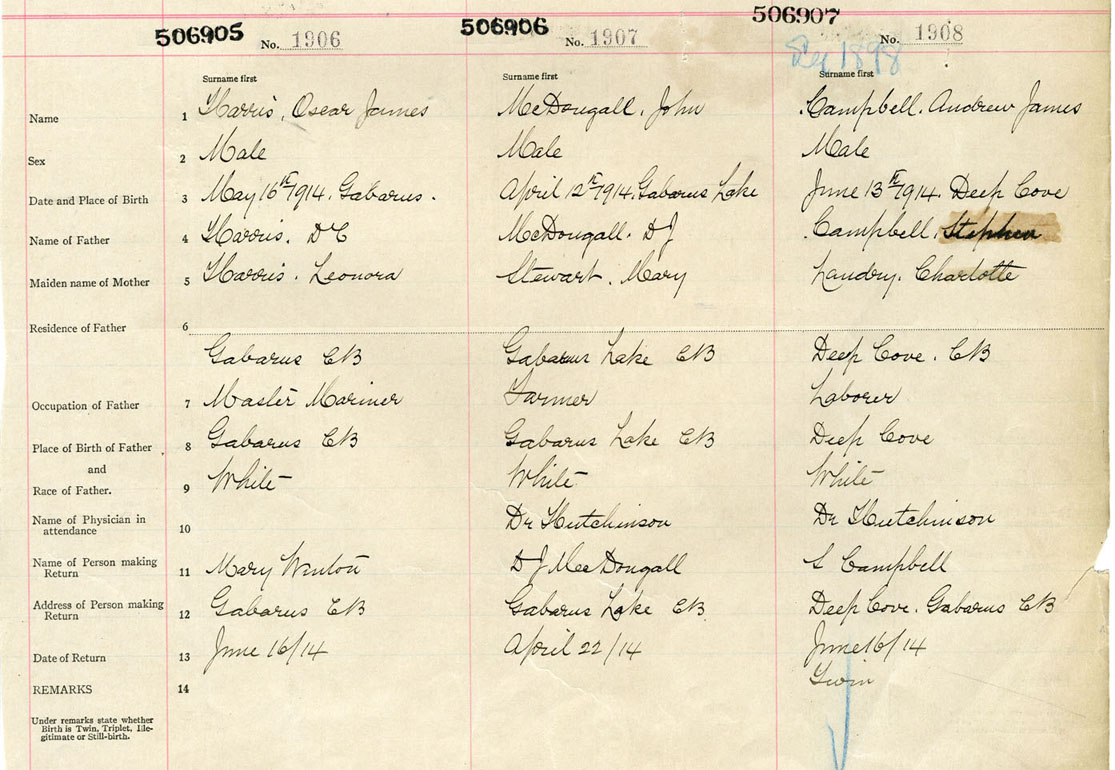 506905 No. 1906 506906 No. 1907 506907 No. 1908
1898
Surname first Surname first Surname first
Name 1 Harris, Oscar James McDougall, John Campbell, Andrew James
Sex 2 Male Male Male
Date and Place of Birth 3 May 16th 1914. Gabarus. April 12th 1914. Gabarus Lake June 13th 1914. Deep Cove
Name of Father 4 Harris. DC McDougall. DJ Campbell. Stephen
Maiden name of Mother 5 Harris. Leonora Stewart. Mary Landry. Charlotte
Residence of Father 6
Gabarus CB Gabarus Lake CB Deep Cove. CB
Occupation of Father 7 Master Mariner Farmer Laborer
Place of Birth of Father 8 Gabarus CB Gabarus Lake CB Deep Cove
and
Race of Father. 9 White White White
Name of Physician in
attendance 10 Dr Hutchinson Dr Hutchinson
Name of Person making
Return 11 Mary Winton D J MacDougall S Campbell
Address of Person making
Return 12 Gabarus CB Gabarus Lake CB. Deep Cove. Gabarus CB
Date of Return 13 June 16/14 April 22/14 June 16/14
REMARKS 14 Twin
Under remarks state whether
Birth is Twin, Triplet, Ille-
gitimate or Still-birth.